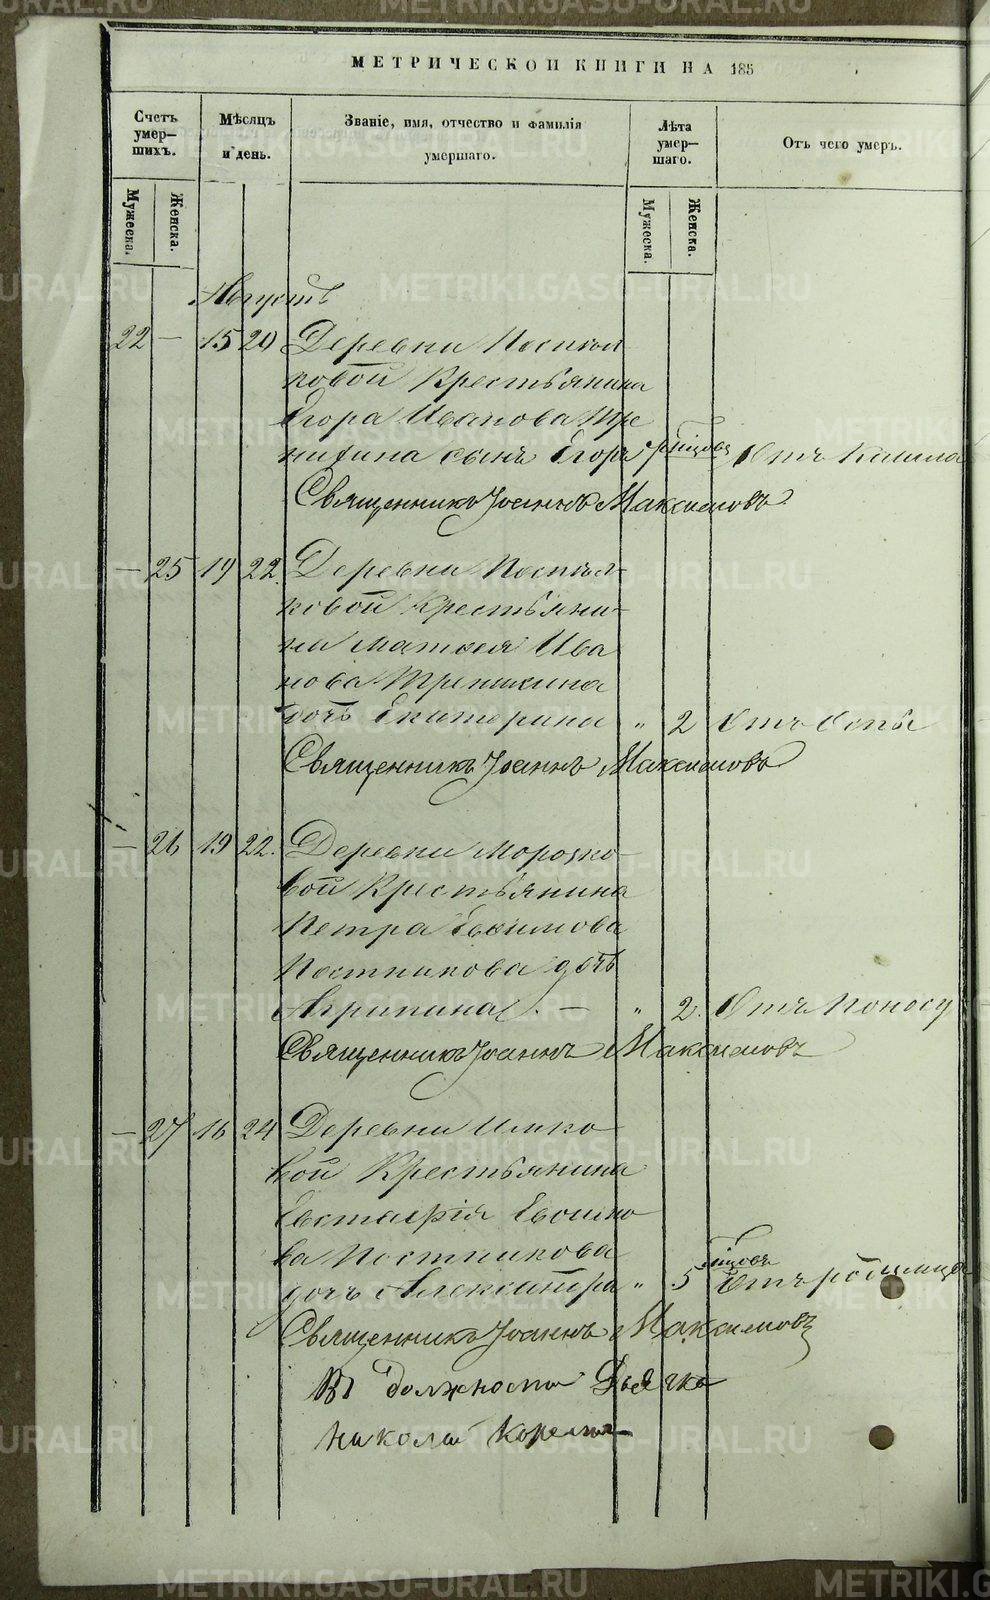 МЕТРИЧЕСКОЙ КНИГИ НА 185
Счетъ умер–шихъ.
Мѣсяцъ и день.
Званіе, имя, отчество и фамилія умершаго.
Лѣта умер–шаго.
Отъ чего умеръ.
Мужеска.
Женска.
Мужеска.
Женска.
Августъ
22 — 15 20 Деревни
ковой Крестьянина
Егора Иванова Тре
нихина сынъ Егоръ Отъ Кашля
Священникъ Іоаннъ Максимовъ
— 25 19 22. Деревни
ковой Крестьяни–
на Матвея Ива
нова Трепихина
дочь Екатерина „ 2 Отъ Оспы
Священникъ Іоаннъ Максимовъ
— 26 19 22. Деревни Морозко–
вой Крестьянина
Петра Евфимова
Постникова дочь
Агрипина. — „ 2. Отъ Поносу
Священникъ Іоаннъ Максимовъ
— 27 16 24 Деревни Ипко
вой Крестьянина
Евстафія
ва Постникова
дочь Александра „ 5 мѣсяцовъ Отъ родимца
Священникъ Іоаннъ Максимовъ
Въ должности Дьячка
Николай
METRIKI.GASO-URAL.RU